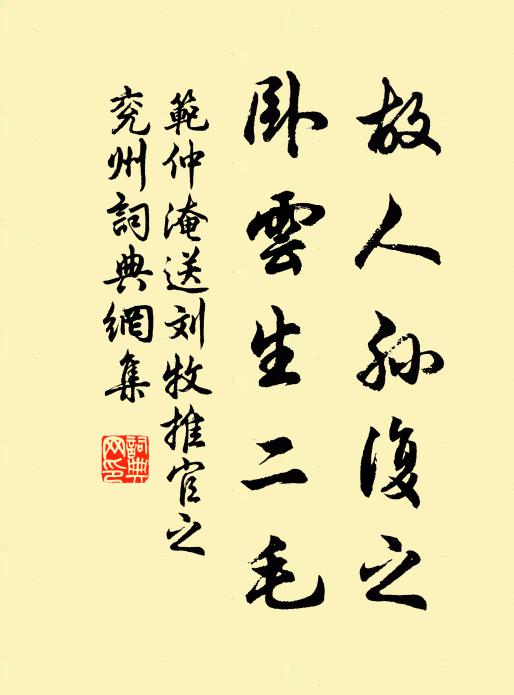 故人孫復之
臥雲生二毛
範仲淹送刘牧推官之
兖州詞典網集
詞典网印